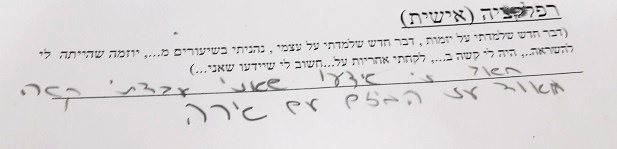 רפלקציה (אישית)
(דבר חדש שלמדתי על יזמות, דבר חדש שלמדתי על עצמי, נהניתי בשיעורים מ..., יוזמה שהייתה לי
להשראה.., היה לי קשה ב..., לקחתי אחריות על...חשוב לי שיידעו שאני...)
חשוב לי שידעו שאני עבדתי קשה
מאוד על המיזם עם אירה